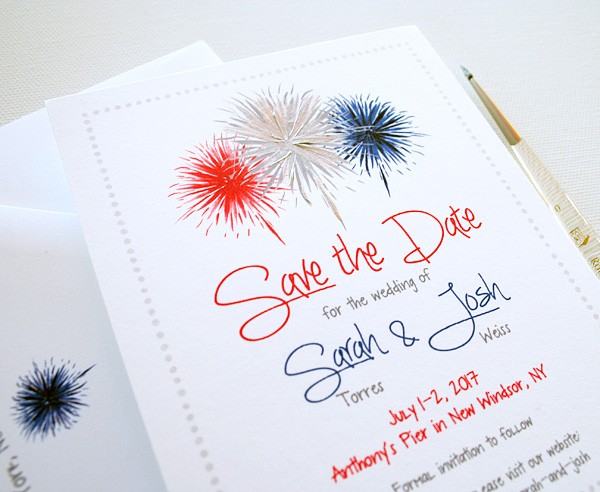 Save the Date
for the wedding of
Sarah & Josh
Torres Weiss
July 1-2, 2017
Anthony's Pier in New Windsor, NY
Formal invitation to follow
please visit our website: